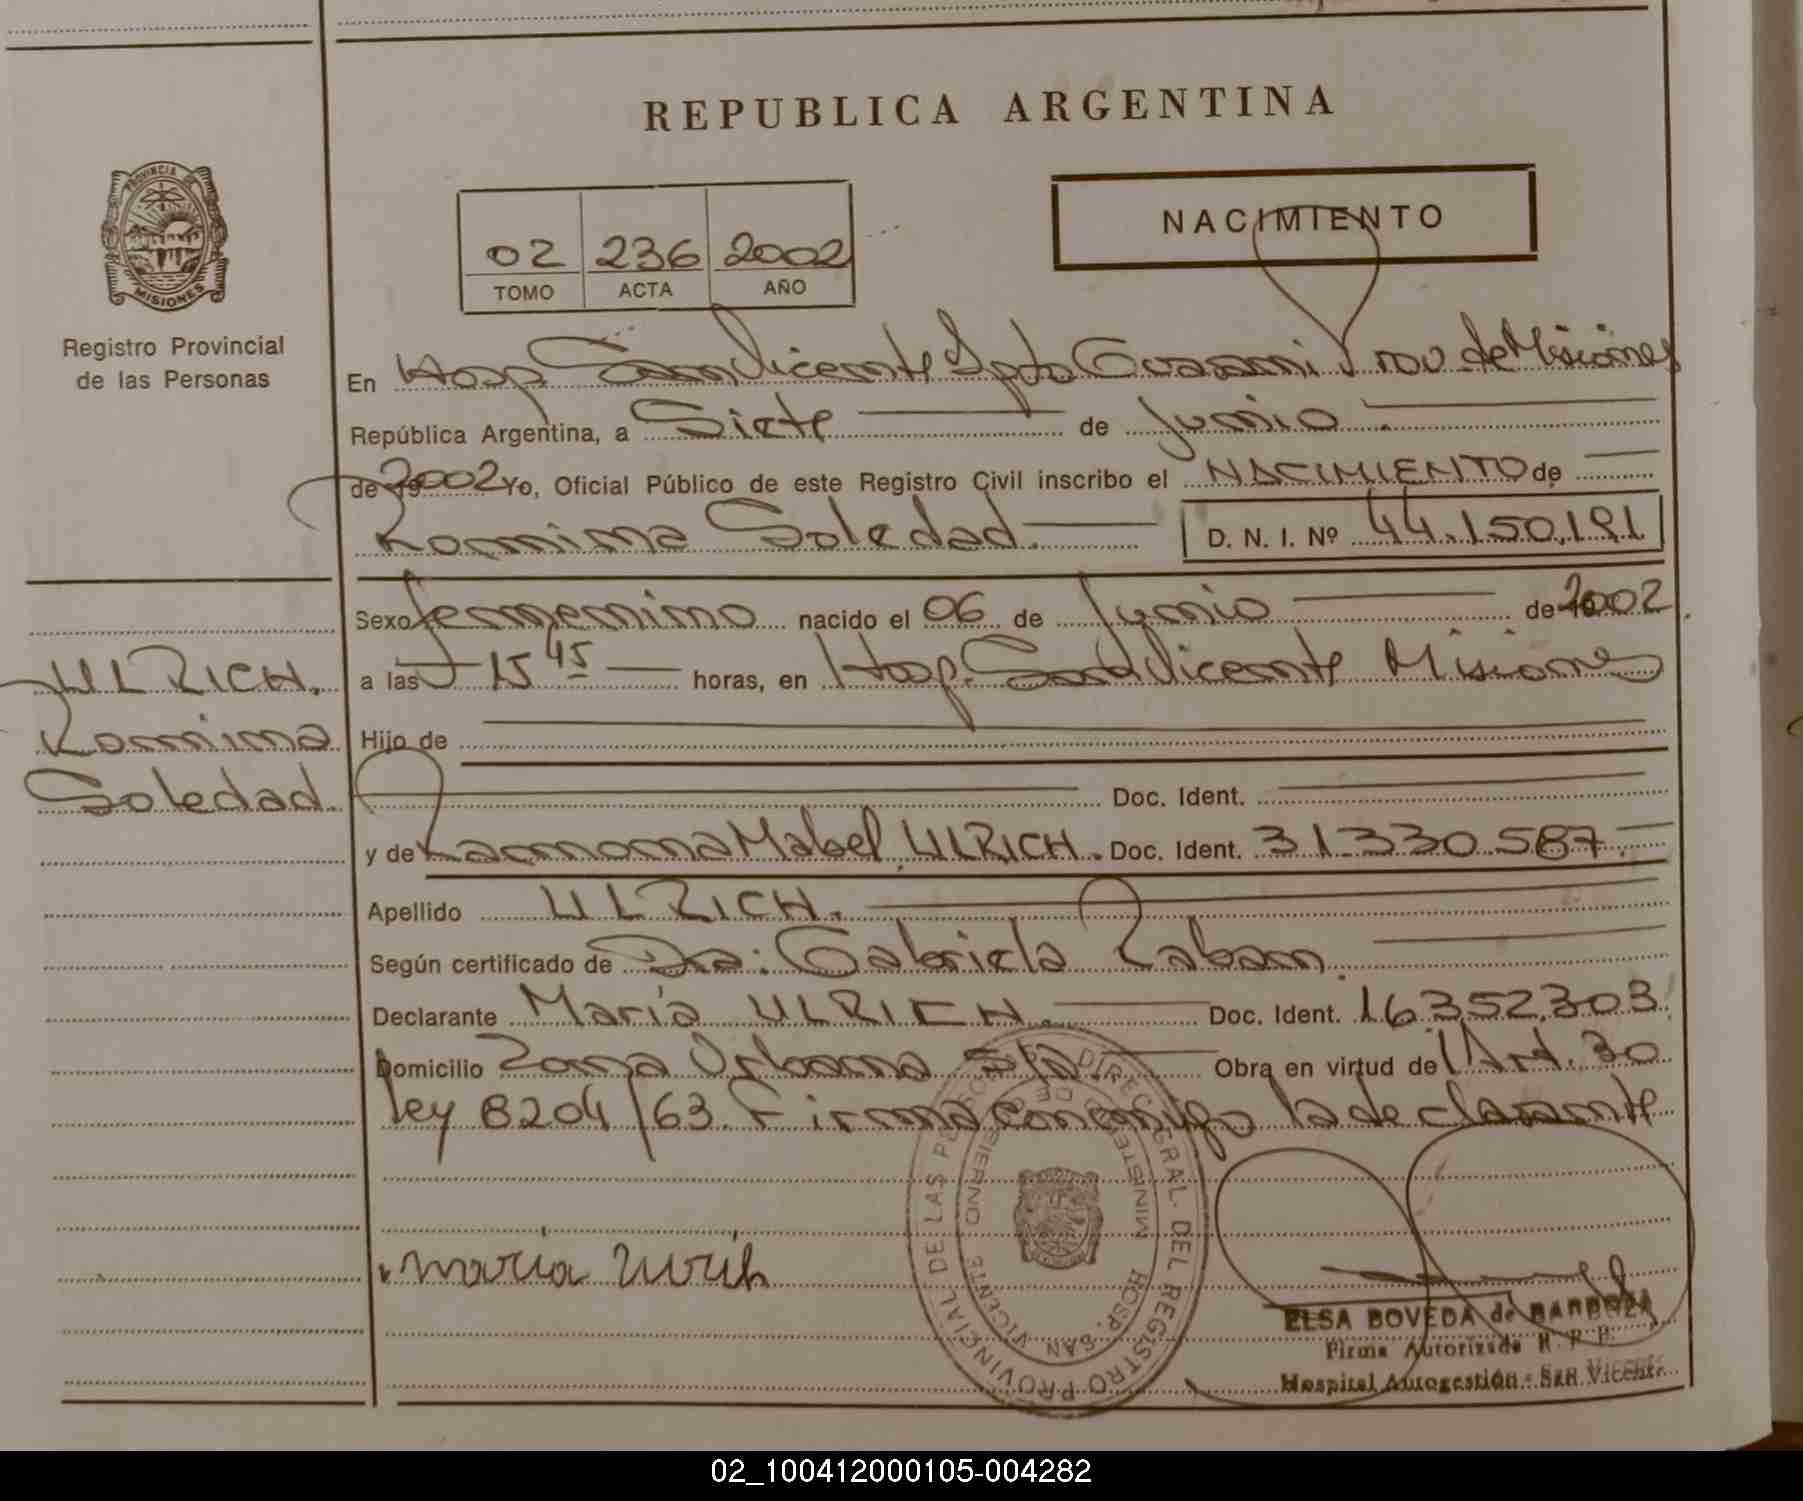 REPUBLICA ARGENTINA
PROVINCIA DE
MISIONES
Registro Provincial
de las Personas
02 236 2002
TOMO ACTA AÑO
NACIMIENTO
En Hosp. San Vicente Dpto Guarani Prov. de Misiones
República Argentina, a Siete de Junio
de 2002 Yo, Oficial Público de este Registro Civil inscribo el NACIMIENTO de
Romina Soledad. D. N. I. Nº 44.150.191
Sexo femenino nacido el 06 de Junio de 2002
a las 15 45 horas, en Hosp. San Vicente Misiones
Hijo de
Doc. Ident.
y de Ramona Mabel ULRICH. Doc. Ident. 31.330.587.
Apellido ULRICH.
Según certificado de Dra: Gabriela Laban.
Declarante María ULRICH. Doc. Ident. 16.352.303
Domicilio Zona Urbana S/n. Obra en virtud del Art. 30
ley 8204/63. Firma conmigo la declarante
ULRICH.
Romina
Soledad.
maria Ulrich
DIREC. GRAL. DEL REGISTRO PROVINCIAL DE LAS PERSONAS
MINISTERIO DE GOBIERNO
HOSP. SAN VICENTE
ELSA BOVEDA de BARBOZA
Firma Autorizada R. P. P.
Hospital Autogestión - San Vicente
02_100412000105-004282